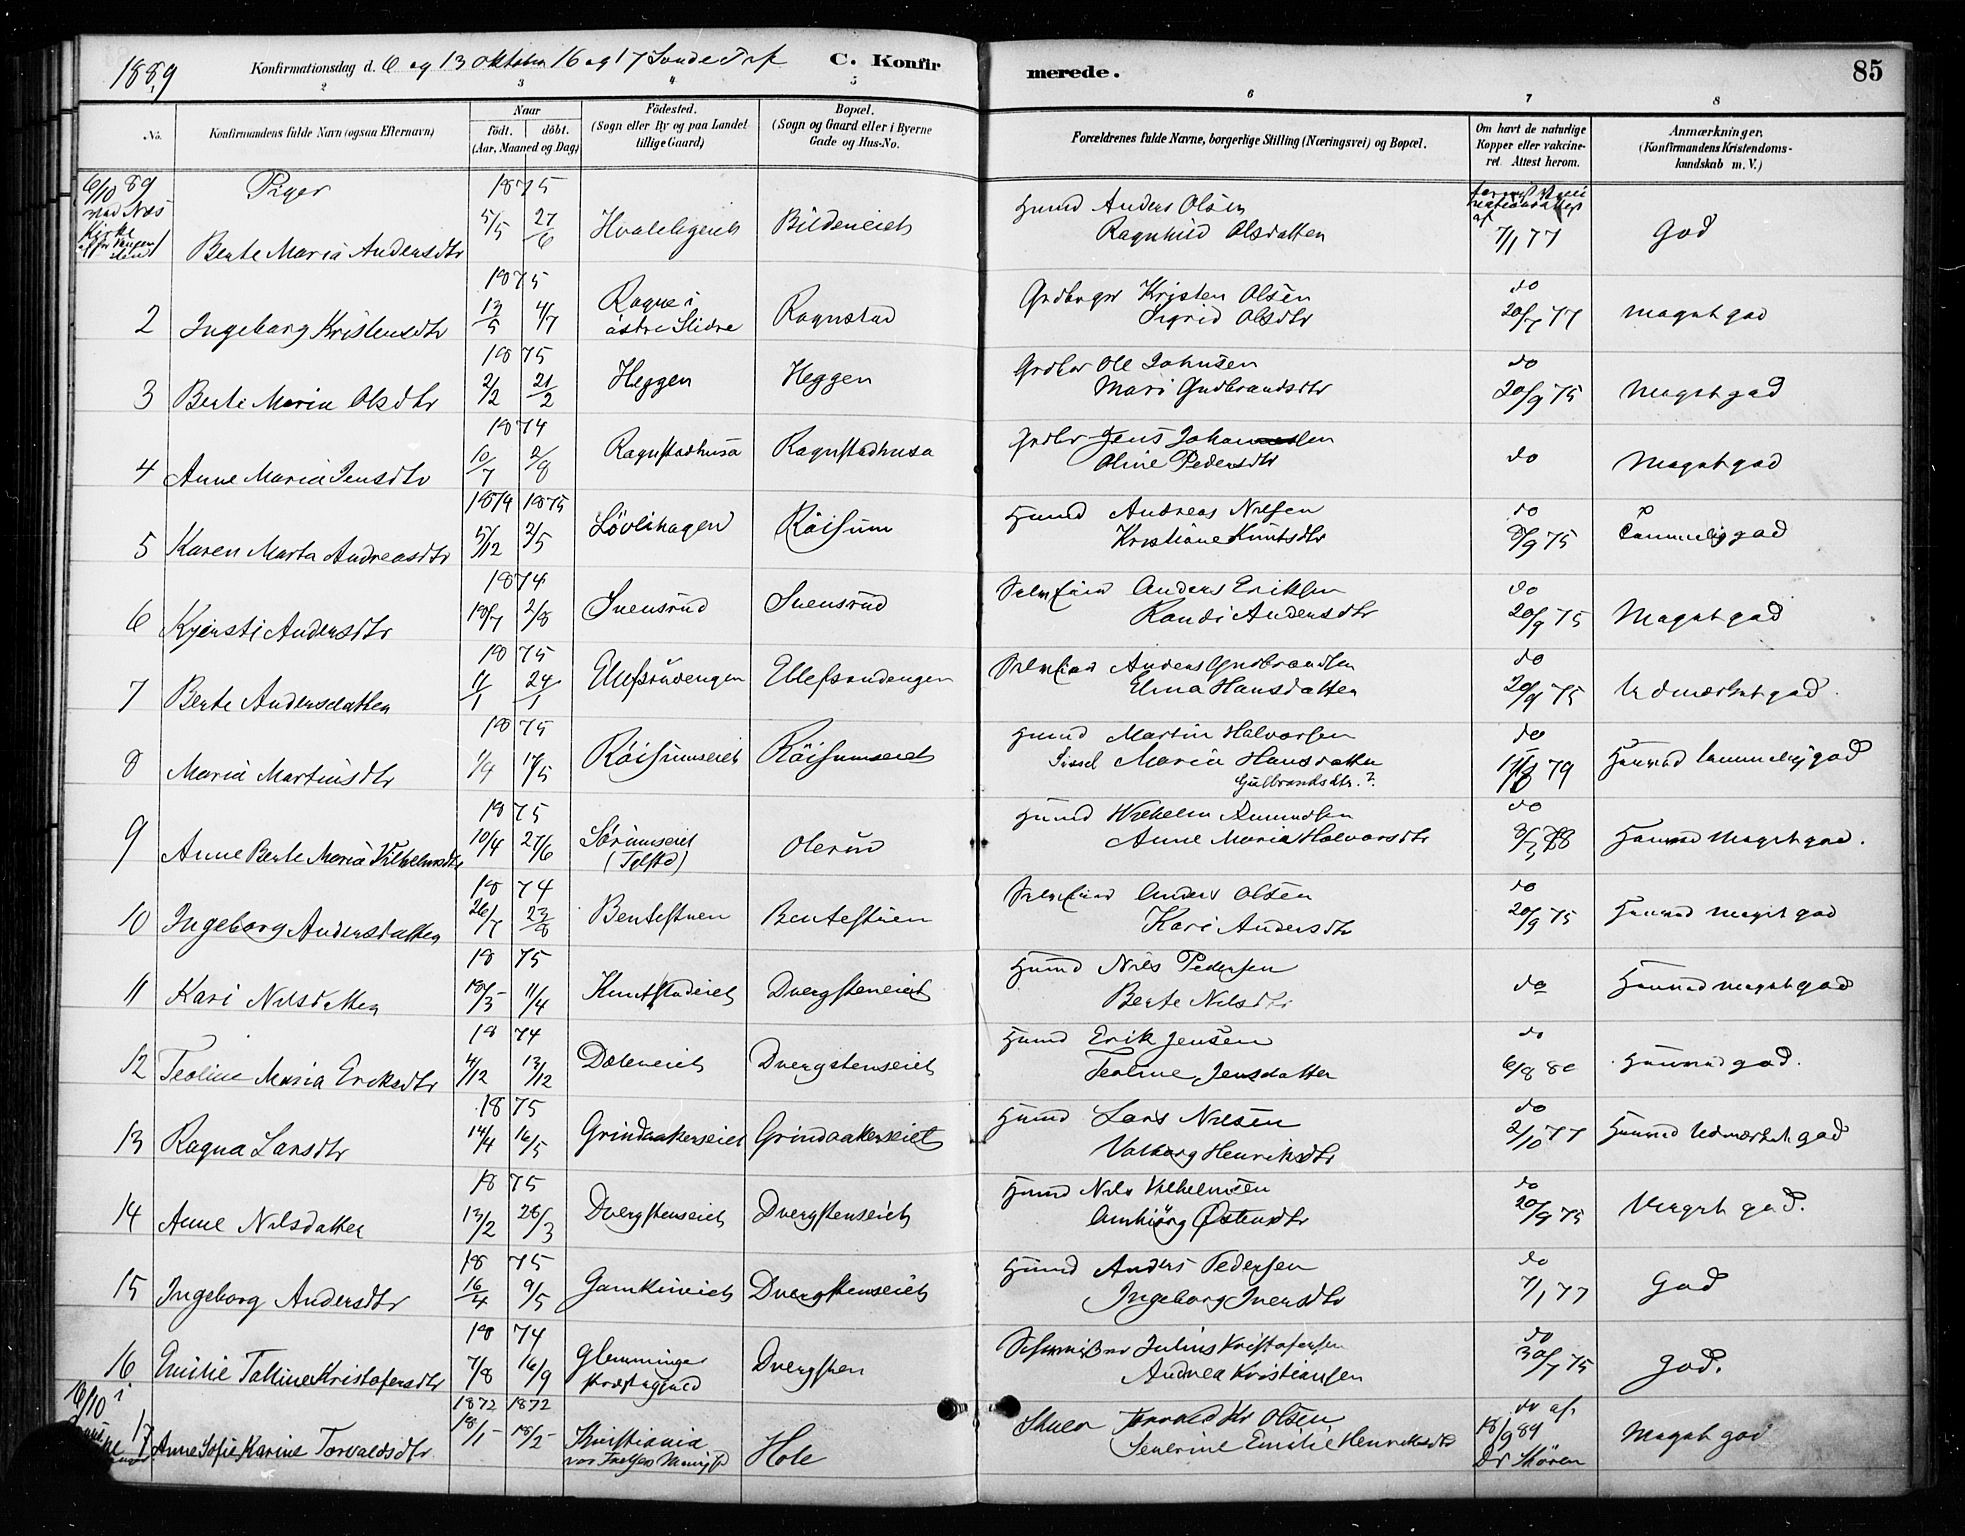 1889 Konfirmationsdag d. 6 og 13 Oktober 16 og 17 Sonde Trf C. Konfirmerede. 85
2 3 4 5 6 7 8
No. Konfirmandens fulde Navn (ogsaa Efternavn)
Naar født. døbt. (Aar, Maaned og Dag)
Fødested. (Sogn eller By og paa Landet tillige Gaard)
Bopæl. (Sogn og Gaard eller i Byerne Gade og Hus-No.
Forældrenes fulde Navne, borgerlige Stilling (Næringsvei) og Bopæl.
Om havt de naturlige Kopper eller vakcineret. Attest herom.
Anmærkninger. (Konfirmandens Kristendomskundskab m. V.)
6/10 89 Piger 1875
Berte Maria Andersdtr 5/5 27/6 Hvalebyeiet Bildeneiet Husmd Anders Olsen
Ragnhild Olsdatter 7/1 77 God
1875 do
2 Ingeborg Kristensdtr 13/5 4/7 Rogne i østre Slidre Ragnstad Grdbrgr Kristen Olsen
Sigrid Olsdtr 20/7 77 Meget god
1875 do
3 Berte Maria Olsdtr 2/2 21/2 Heggen Heggen Grdbr Ole Johnsen
Mari Gudbrandsdtr 20/9 75 Meget god
1874
4 Anne Maria Jensdtr 10/7 2/8 Ragnstadhusa Ragnstadhusa Grdbr Jens Johannessen
Oline Pedersdtr do Meget god
1874 1875 do
5 Karen Marta Andreasdtr 5/12 2/5 Løvlihagen Røisum Husmd Andreas Nilsen
Kristiane Knutsdtr 8/9 75 Temmelig god
1874 do
6 Kjersti Andersdtr 18/7 2/8 Svensrud Svensrud Selveier Anders Eriksen
Randi Andersdtr 20/9 75 Meget god
1875 do
7 Berte Andersdatter 11/1 24/1 Ellefsrudengen Ellefsrudengen Selveier Anders Gudbrandsen
Elina Hansdatter 20/9 75 Udmærket god.
1875 do
8 Maria Martinsdtr 1/4 17/5 Røisumseiet Røisumseiet Husmd Martin Halvorsen
Sissel Maria Hansdatter
Gulbrandsdtr.? 79 Hannæs temmelig god
1875 do
9 Anne Berte Maria Vilhelmsdtr 10/4 27/6 Sørumseiet (Tolfsd) Olerud Husmd Wilhelm Amundsen
Anne Maria Halvorsdtr 3/3 88 meget god.
1874 do
10 Ingeborg Andersdatter 26/7 23/8 Bentestuen Bentestuen Selveier Anders Olsen
Kari Andersdtr 20/9 75 meget god
1875
11 Kari Nilsdatter 18/3 11/4 Knutstadeiet Dvergsteneiet Husmd Nils Pedersen
Berte Nilsdtr do meget god
1874 do
12 Teoline Maria Eriksdtr 4/12 13/12 Daleneiet Dvergstenseiet Husmd Erik Jensen
Teoline Jensdatter 6/8 80 god.
1875 do
13 Ragna Larsdtr 14/4 16/5 Grindaakerseiet Grindaakerseiet Husmd Lars Nilsen
Valborg Henriksdtr 2/10 77 Udmærket god
1875 do
14 Anne Nilsdatter 13/2 28/3 Dvergstenseiet Dvergstenseiet Husmd Nils Vilhelmsen
Anbjørg Østensdtr 20/9 75 Meget god.
1875 do
15 Ingeborg Andersdtr 16/4 9/5 Gamkineiet Dvergstenseiet Husmd Anders Pedersen
Ingeborg Iversdtr 7/1 77 God
1874 do
16 Emilie Tolline Kristofersdtr 7/8 16/9 Glemminge Præstegjeld Dvergsten Julius Kristofersen
Andrea Kristiansen 30/7 75 God.
16/10 i 1872 1872 do af
17 Anne Sofie Karine Torvaldsdtr 18/1 18/2 Kristiania vor Frelsers Menighd Hole Torvald Kr Olsen
Severine Emilie Henriksdtr 18/9 89 Dr Skøien Meget god